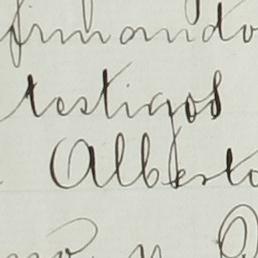 firmando
testigos
Alberto
y